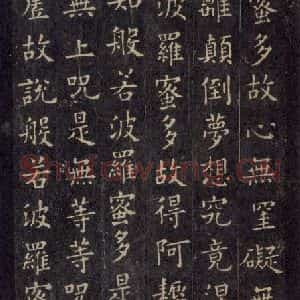 蜜多故心無罣礙無
離顛倒夢想究竟涅
波羅蜜多故得阿耨
知般若波羅蜜多是
無上咒是無等等咒
虛故說般若波羅蜜